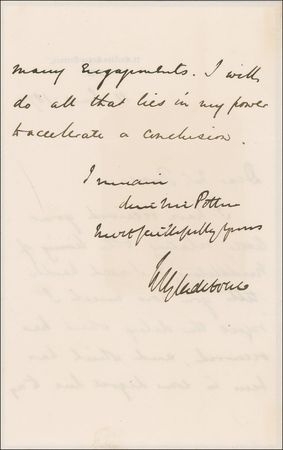 many engagements. I will
do all that lies in my power
to accelerate a conclusion.
I remain
dear Mr Potter
Most faithfully yours
WE Gladstone